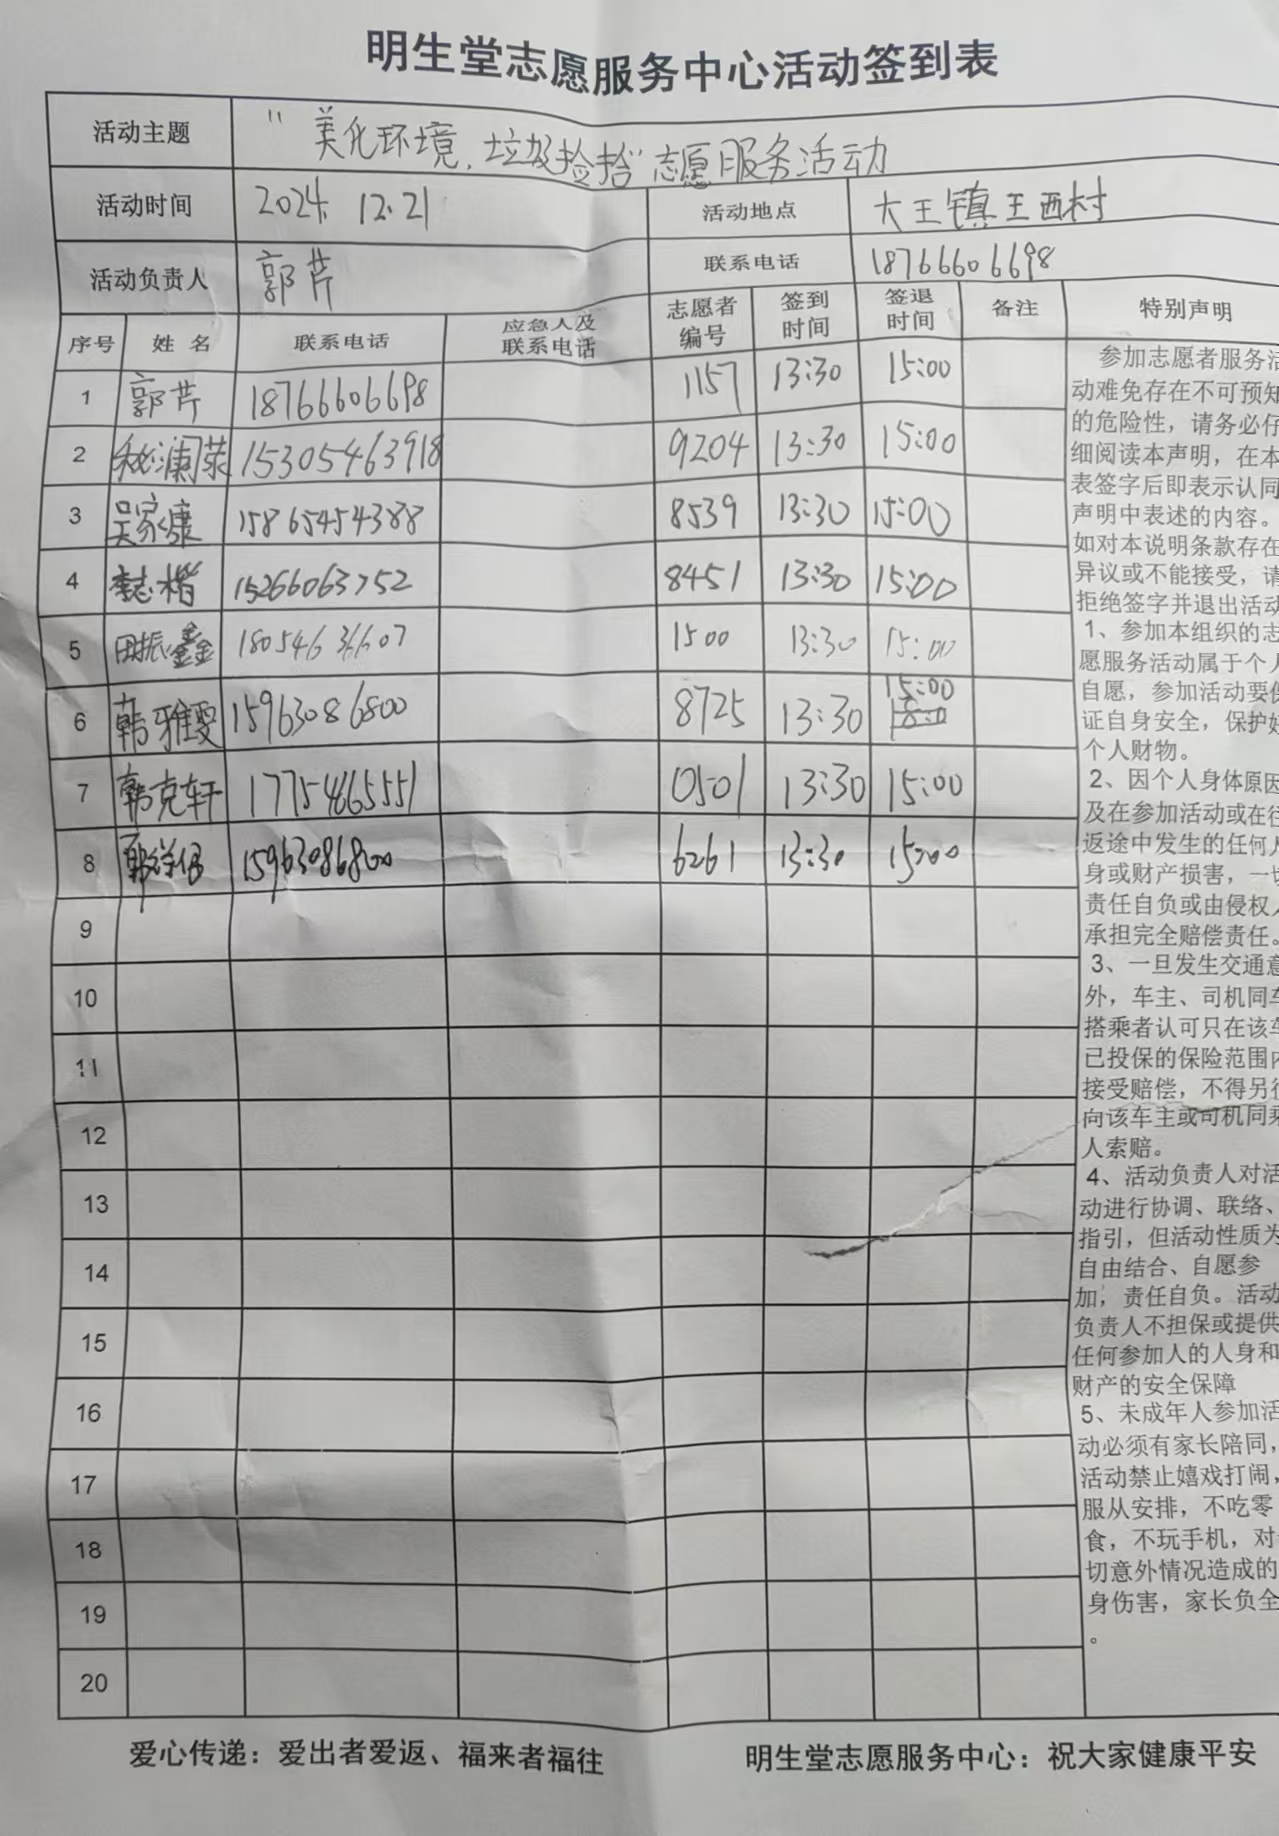 明生堂志愿服务中心活动签到表
活动主题 "美化环境,垃圾捡拾"志愿服务活动
活动时间 2024. 12.21 活动地点 大王镇王西村
活动负责人 郭芹 联系电话 18766606698
序号 姓名 联系电话 应急人及联系电话 志愿者编号 签到时间 签退时间 备注 特别声明
1 郭芹 18766606698 1157 13:30 15:00
2 15305463918 9204 13:30 15:00
3 吴家康 15865454388 8539 13:30 15:00
4 李志楷 15266063752 8451 13:30 15:00
5 田振鑫 1500 13:30 15:00
6 韩雅雯 15963086800 8725 13:30 15:00
7 韩克轩 17754665551 0501 13:30 15:00
8 15963086800 6261 13:30 15:00
9
10
11
12
13
14
15
16
17
18
19
20
参加志愿者服务活
动难免存在不可预知
的危险性，请务必仔
细阅读本声明，在本
表签字后即表示认同
声明中表述的内容。
如对本说明条款存在
异议或不能接受，请
拒绝签字并退出活动
1、参加本组织的志
愿服务活动属于个人
自愿，参加活动要保
证自身安全，保护好
个人财物。
2、因个人身体原因
及在参加活动或在往
返途中发生的任何人
身或财产损害，一切
责任自负或由侵权人
承担完全赔偿责任。
3、一旦发生交通意
外，车主、司机同车
搭乘者认可只在该车
已投保的保险范围内
接受赔偿，不得另行
向该车主或司机同乘
人索赔。
4、活动负责人对活
动进行协调、联络、
指引，但活动性质为
自由结合、自愿参
加，责任自负。活动
负责人不担保或提供
任何参加人的人身和
财产的安全保障
5、未成年人参加活
动必须有家长陪同，
活动禁止嬉戏打闹，
服从安排，不吃零
食，不玩手机，对
切意外情况造成的
身伤害，家长负全
。
爱心传递：爱出者爱返、福来者福往 明生堂志愿服务中心：祝大家健康平安